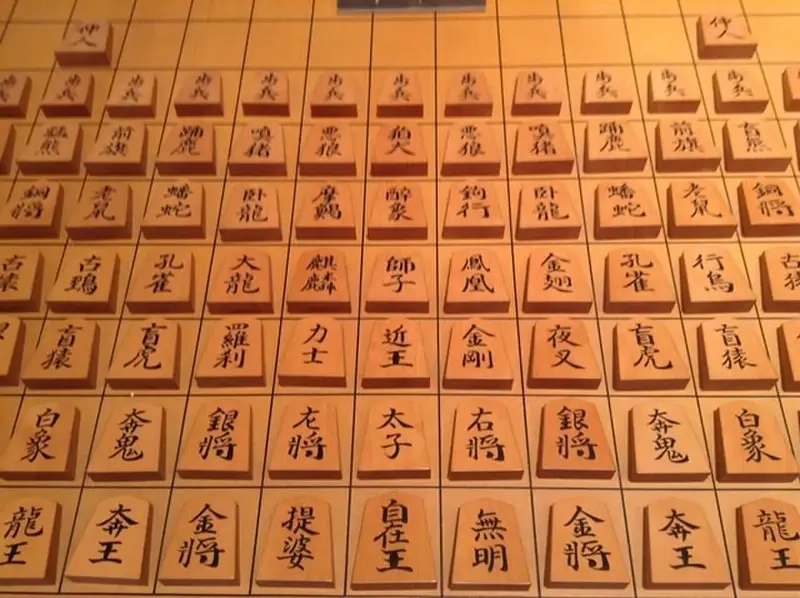 仲人 仲人
歩兵 歩兵 歩兵 歩兵 歩兵 歩兵 歩兵 歩兵 歩兵 歩兵 歩兵
前旗 踊鹿 嗔猪 悪狼 狛犬 悪狼 嗔猪 踊鹿 前旗 盲熊
銅將 老鼠 蟠蛇 卧龍 醉象 鉤行 卧龍 蟠蛇 老鼠 銅將
古猿 古鵄 孔雀 大龍 麒麟 師子 鳳凰 金翅 孔雀 行鳥 古猿
盲猿 盲虎 羅利 力士 近王 金剛 夜叉 盲虎 盲猿
白象 奔鬼 銀將 左將 太子 右將 銀將 奔鬼 白象
龍王 奔王 金將 提婆 自在王 無明 金將 奔王 龍王